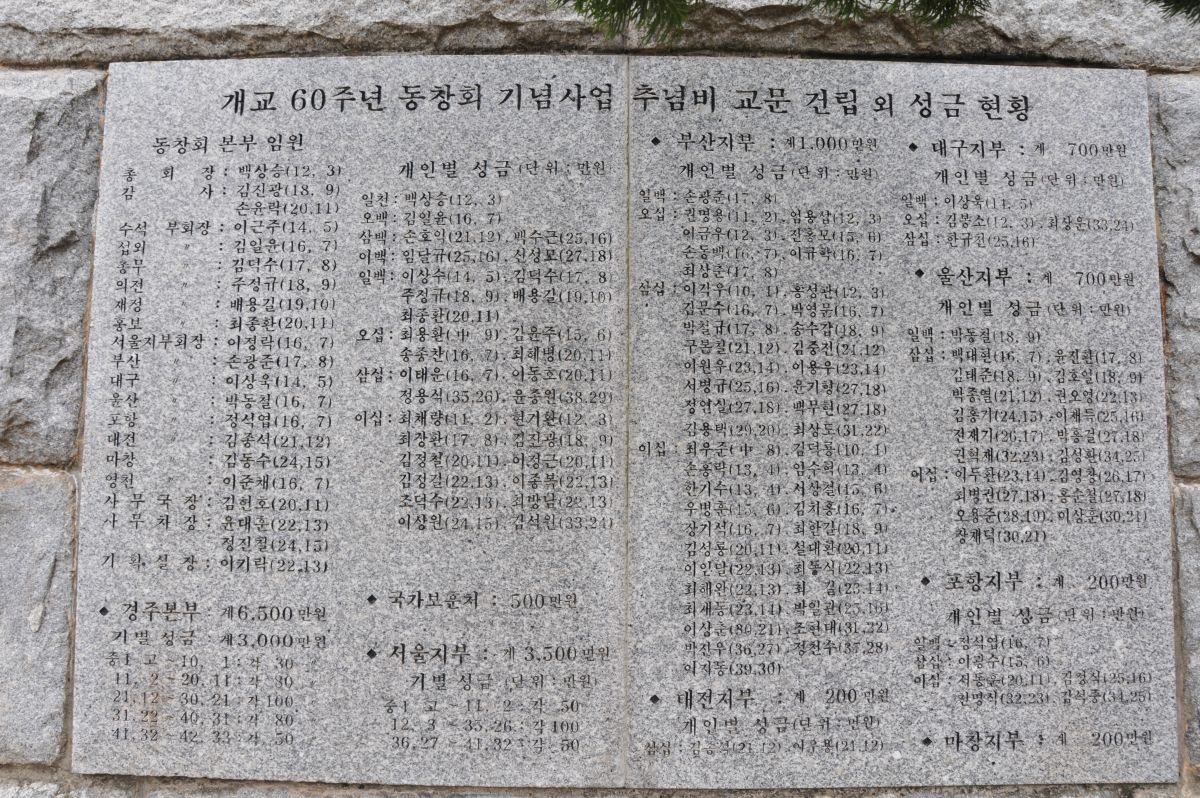 개교 60주년 동창회 기념사업 추념비 교문 건립 외 성금 현황
동창회 본부 임원
총 회 장 : 백상승(12, 3)
감 사 : 김진광(18, 9)
손윤락(20,11)
수석 부회장 : 이근주(14, 5)
섭외 〃 : 김일윤(16, 7)
총무 〃 : 김덕수(17, 8)
의전 〃 : 주정규(18, 9)
재정 〃 : 배용길(19,10)
홍보 〃 : 최종환(20,11)
서울지부회장 : 이정락(16, 7)
부산 〃 : 손광준(17, 8)
대구 〃 : 이상욱(14, 5)
울산 〃 : 박동철(16, 7)
포항 〃 : 정석엽(16, 7)
대전 〃 : 김종식(21,12)
마창 〃 : 김동수(24,15)
영천 〃 : 이준채(16, 7)
사 무 국 장 : 김헌호(20,11)
사 무 차 장 : 윤대훈(22,13)
정진철(24,15)
기 획 실 장 : 이기락(22,13)
◆ 경주본부 계6,500만원
기별 성금 : 계3,000만원
중1 고 ~ 10, 1 : 각 30 〃
11, 2 ~ 20, 11 : 각 80 〃
21,12 ~ 30,21 : 각100 〃
31,22 ~ 40,31 : 각 80 〃
41,32 ~ 42,33 : 각 50 〃
개인별 성금(단위 : 만원)
일천 : 백상승(12, 3)
오백 : 김일윤(16, 7)
삼백 : 손호익(21,12) 백수근(25,16)
이백 : 임달규(25,16) 신성모(27,18)
일백 : 이상수(14, 5) 김덕수(17, 8)
주정규(18, 9) 배용길(19,10)
최종환(20,11)
오십 : 최용환(中 9) 김윤주(15, 6)
송종찬(16, 7) 최해병(20,11)
삼십 : 이태운(16, 7) 이동호(20,11)
정용식(35,26) 윤종원(38,29)
이십 : 최채량(11, 2) 현기환(12, 3)
최장환(17, 8) 김진광(18, 9)
김정철(20,11) 이정근(20,11)
김정길(22,13) 이종복(22,13)
조덕수(22,13) 최방남(22,13)
이상원(24,15) 김석원(33,24)
◆ 국가보훈처 : 500만원
◆ 서울지부 : 계 3,500만원
기별 성금 (단위 : 만원)
중1 고 ~ 11, 2 : 각 50
12, 3 ~ 35,26 : 각100
36,27 ~ 41,32 : 각 50
◆ 부산지부 : 계1,000만원
개인별 성금(단위 : 만원)
일백 : 손광준(17, 8)
오십 : 권명용(11, 2) 엄용삼(12, 3)
이금우(12, 3) 진홍모(15, 6)
손동백(16, 7) 이규학(16, 7)
최상준(17, 8)
삼십 : 이각우(10, 1) 홍성관(12, 3)
김문수(16, 7) 박영훈(16, 7)
박철규(17, 8) 송수갑(18, 9)
구본질(21,12) 김중진(21,12)
이원우(23,14) 이용우(23,14)
서병규(25,16) 윤기향(27,18)
정연실(27,18) 백무현(27,18)
김용택(29,20) 최상도(31,22)
이십 : 최우준(中 8) 김덕룡(10, 1)
손용락(13, 4) 엄수혁(13, 4)
한기수(13, 4) 서상철(15, 6)
우병훈(15, 6) 김치홍(16, 7)
장기석(16, 7) 최한길(18, 9)
김성룡(20,11) 설대환(20,11)
이인달(22,13) 최통식(22,13)
최해완(22,13) 최 길(23,14)
최재동(23,14) 박일관(25,16)
이상춘(30,21) 조현태(31,22)
박진우(36,27) 정천수(37,28)
여지동(39,30)
◆ 대전지부 : 계 200만원
개인별 성금(단위 : 만원)
삼십 : (21,12) (21,12)
◆ 대구지부 : 계 700만원
개인별 성금(단위 : 만원)
일백 : 이상욱(14, 5)
오십 : 김봉소(12, 3) 최상운(33,24)
삼십 : 한규천(25,16)
◆ 울산지부 : 계 700만원
개인별 성금(단위 : 만원)
일백 : 박동철(18, 9)
삼십 : 백대헌(16, 7) 윤진환(17, 8)
김태준(18, 9) 김호일(18, 9)
박종열(21,12) 권오영(22,13)
김홍기(24,15) 이채득(25,16)
전재기(26,17) 박흥철(27,18)
권혁재(32,23) 김성환(34,25)
이십 : 이두환(23,14) 김영창(26,17)
최병권(27,18) 홍순철(27,18)
오용준(28,19) 이상훈(30,21)
장재덕(30,21)
◆ 포항지부 : 계 200만원
개인별 성금(단위 : 만원)
일백 : 정석엽(16, 7)
삼십 : 이광수(15, 6)
이십 : 서동운(20,11) 김정식(25,16)
천명식(32,23) 김석중(34,25)
◆ 마창지부 : 계 200만원